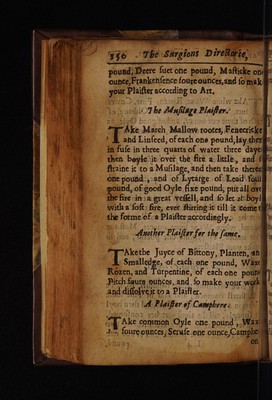 356 The Surgions Directorie,
pound, Deere suet one pound, Masticke one
ounce, Frankensence foure ounces, and so mak
your Plaister according to Art.
The Musilage Plaister.
TAke March Mallow rootes, Fenecricke
and Linseed, of each one pound, lay them
in fuse in three quarts of water three dayes
then boyle it over the fire a little, and
straine it to a Musilage, and then take thereof
one pound, and of Lytarge of Lead foure
pound, of good Oyle sixe pound, put all over
the fire in a great vessell, and so let it boyl
with a soft fire, ever stirring it till it come
the forme of a Plaister accordingly.
Another Plaister for the same.
TAke the Juyce of Bittony, Planten, an
Smalledge, of each one pound, Wax
Rozen, and Turpentine, of each one pound
Pitch foure ounces, and so make your work
and dissolve it to a Plaister.
A Plaister of Camphere.
TAke common Oyle one pound, Wax
foure ounces, Seruse one ounce, Camphe
on